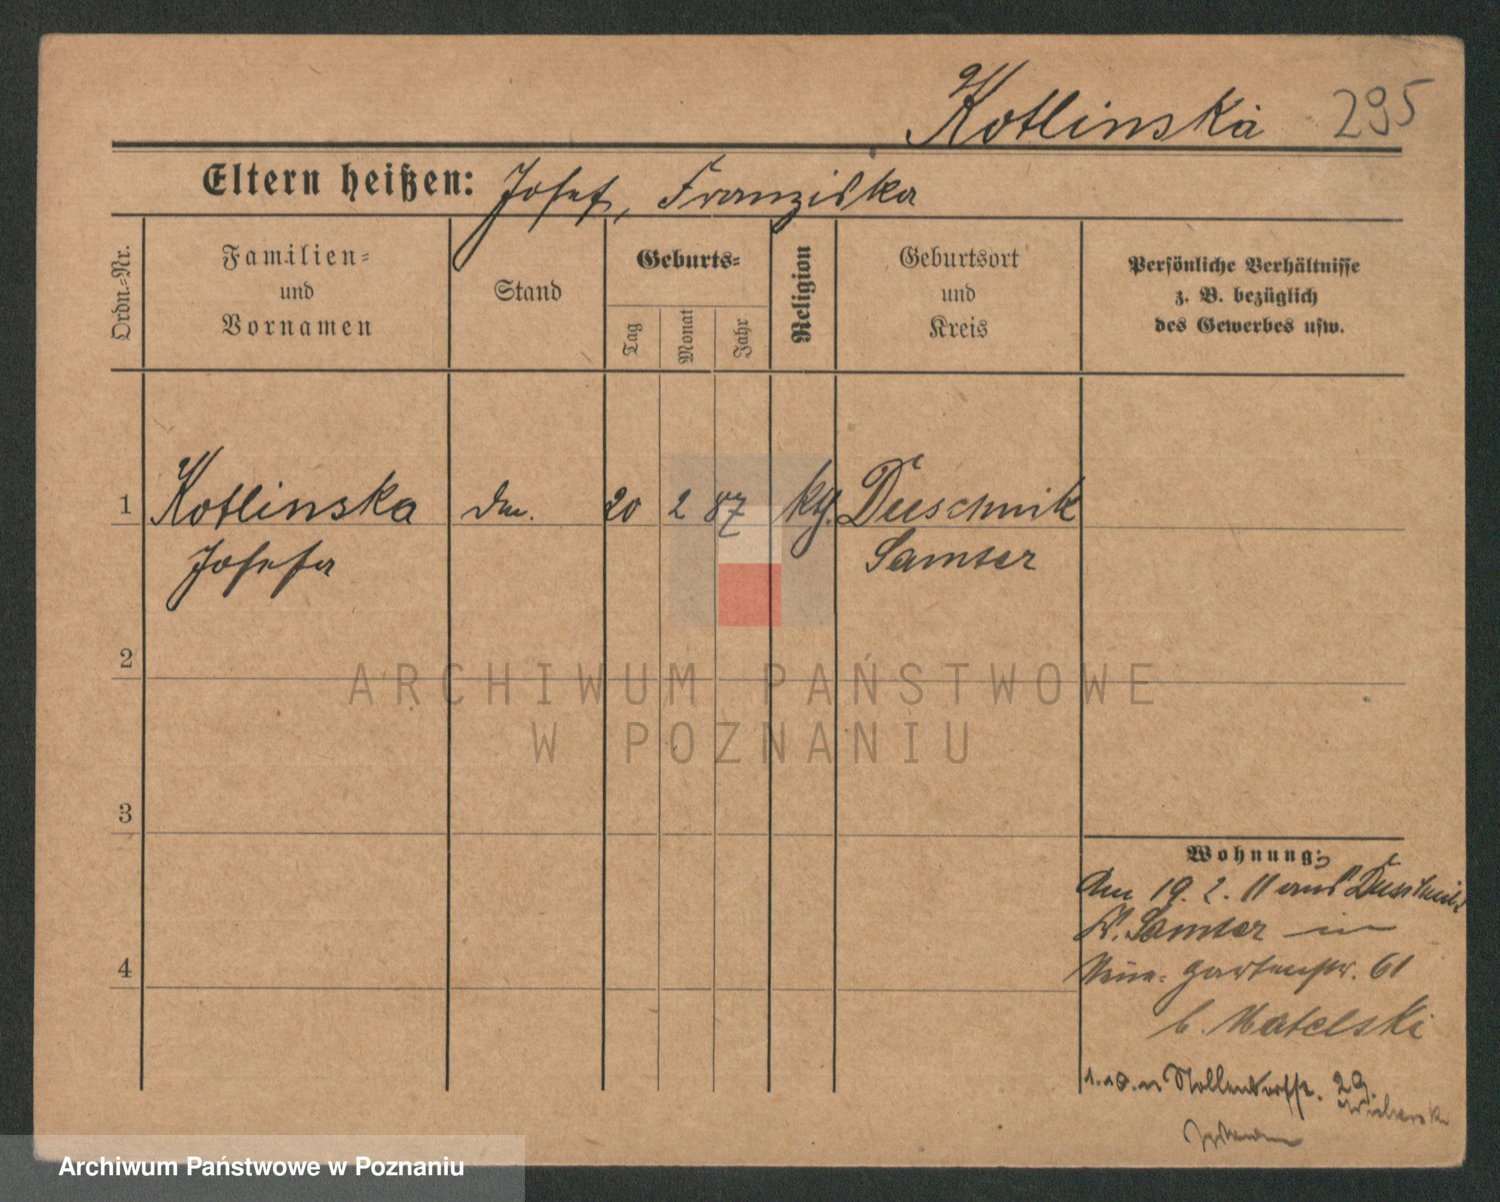 Kotlinska 295
Eltern heißen: Josef, Franziska
Ordn.-Nr.
Familien-
und
Vornamen
Stand
Geburts-
Tag
Monat
Jahr
Religion
Geburtsort
und
Kreis
Persönliche Verhältnisse
z. B. bezüglich
des Gewerbes usw.
1 Kotlinska 20 2 87 Duschnik
Josefa Samter
2
3
4
ARCHIWUM PAŃSTWOWE
W POZNANIU
Wohnung:
Am 19. 2. 11 aus Duschnik
K. Samter in
Neue Gartenstr. 61
b. Matelski
Nollendorfstr. 29.
Archiwum Państwowe w Poznaniu